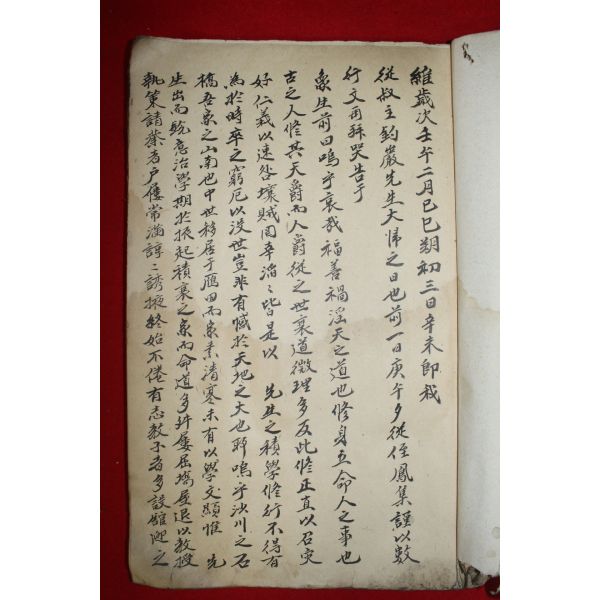 維歲次壬午二月己巳朔初三日辛未即我
從叔主鈞巖先生大歸之日也前一日庚午夕從侄鳳集謹以數
行文再拜哭告于
象生前曰嗚乎哀哉福善禍淫天之道也修身立命人之事也
古之人修其天爵而人爵從之世衰道微理多反此修正直以召灾
好仁義以速咎壤賊固幸滔〻皆是以 先生之積學修行不得有
爲於時卒之窮厄以沒世豈非有憾於天地之大也耶嗚乎汝川之石
橋吾家之山南也中世移居于鴈田而家素淸寒未有以學文顯惟 先
生出而銳意治學期於振起積衰之家而命道多舛屢屈場屋退以敎授
執策請業者戶屨常滿諄〻誘掖終始不倦有志敎子者多設館迎之